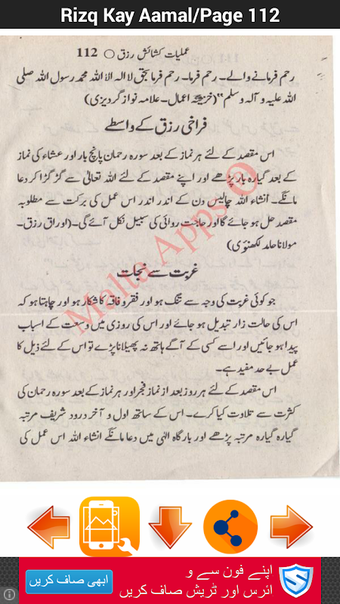 Rizq Kay Aamal/Page 112
عملیات کشائش رزق ○ 112
رحم فرمانے والے۔ رحم فرما۔ رحم فرما بحق لا الہ الا اللہ محمد رسول اللہ صلی
اللہ علیہ و آلہ وسلم" (خزینۃ اعمال۔ علامہ نواز گردیزی)
فراخی رزق کے واسطے
اس مقصد کے لئے ہر نماز کے بعد سورہ رحمان پانچ بار اور عشاء کی نماز
کے بعد گیارہ بار پڑھے اور اپنے مقصد کے لئے اللہ تعالیٰ سے گڑ گڑا کر دعا
مانگے۔ انشاء اللہ چالیس دن کے اندر اندر اس عمل کی برکت سے مطلوبہ
مقصد حل ہو جائے گا اور حاجت روائی کی سبیل نکل آئے گی۔ (اوراق رزق۔
مولانا حامد لکھنوی)
غربت سے نجات
جو کوئی غربت کی وجہ سے تنگ ہو اور فقر و فاقہ کا شکار ہو اور چاہتا ہو کہ
اس کی حالت زار تبدیل ہو جائے اور اس کی روزی میں وسعت کے اسباب
پیدا ہو جائیں اور اسے کسی کے آگے ہاتھ نہ پھیلانا پڑے تو اس کے لئے ذیل کا
عمل بے حد مفید ہے۔
اس مقصد کے لئے ہر روز بعد از نماز فجر اور ہر نماز کے بعد سورہ رحمان کی
کثرت سے تلاوت کیا کرے۔ اس کے ساتھ اول و آخر درود شریف مرتبہ
گیارہ گیارہ مرتبہ پڑھے اور بارگاہ الٰہی میں دعا مانگے انشاء اللہ اس عمل کی
Malta Apps
اپنے فون سے و
ائرس اور ٹریش صاف کریں
ابھی صاف کریں